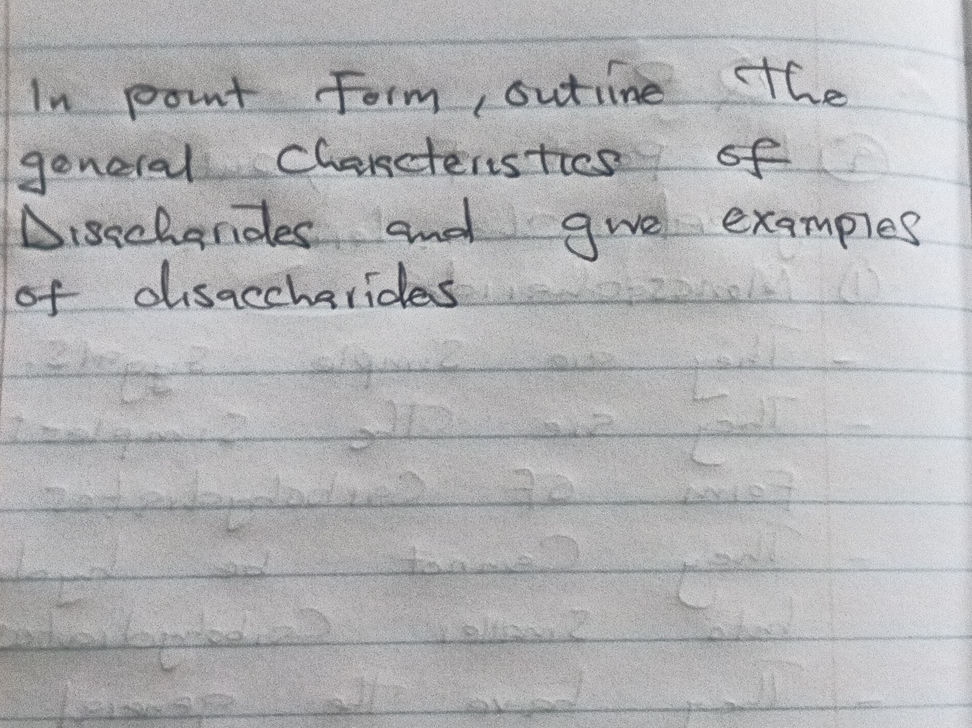 In point Form, outline the
general Characteristics of
Disaccharides and give examples
of disaccharides